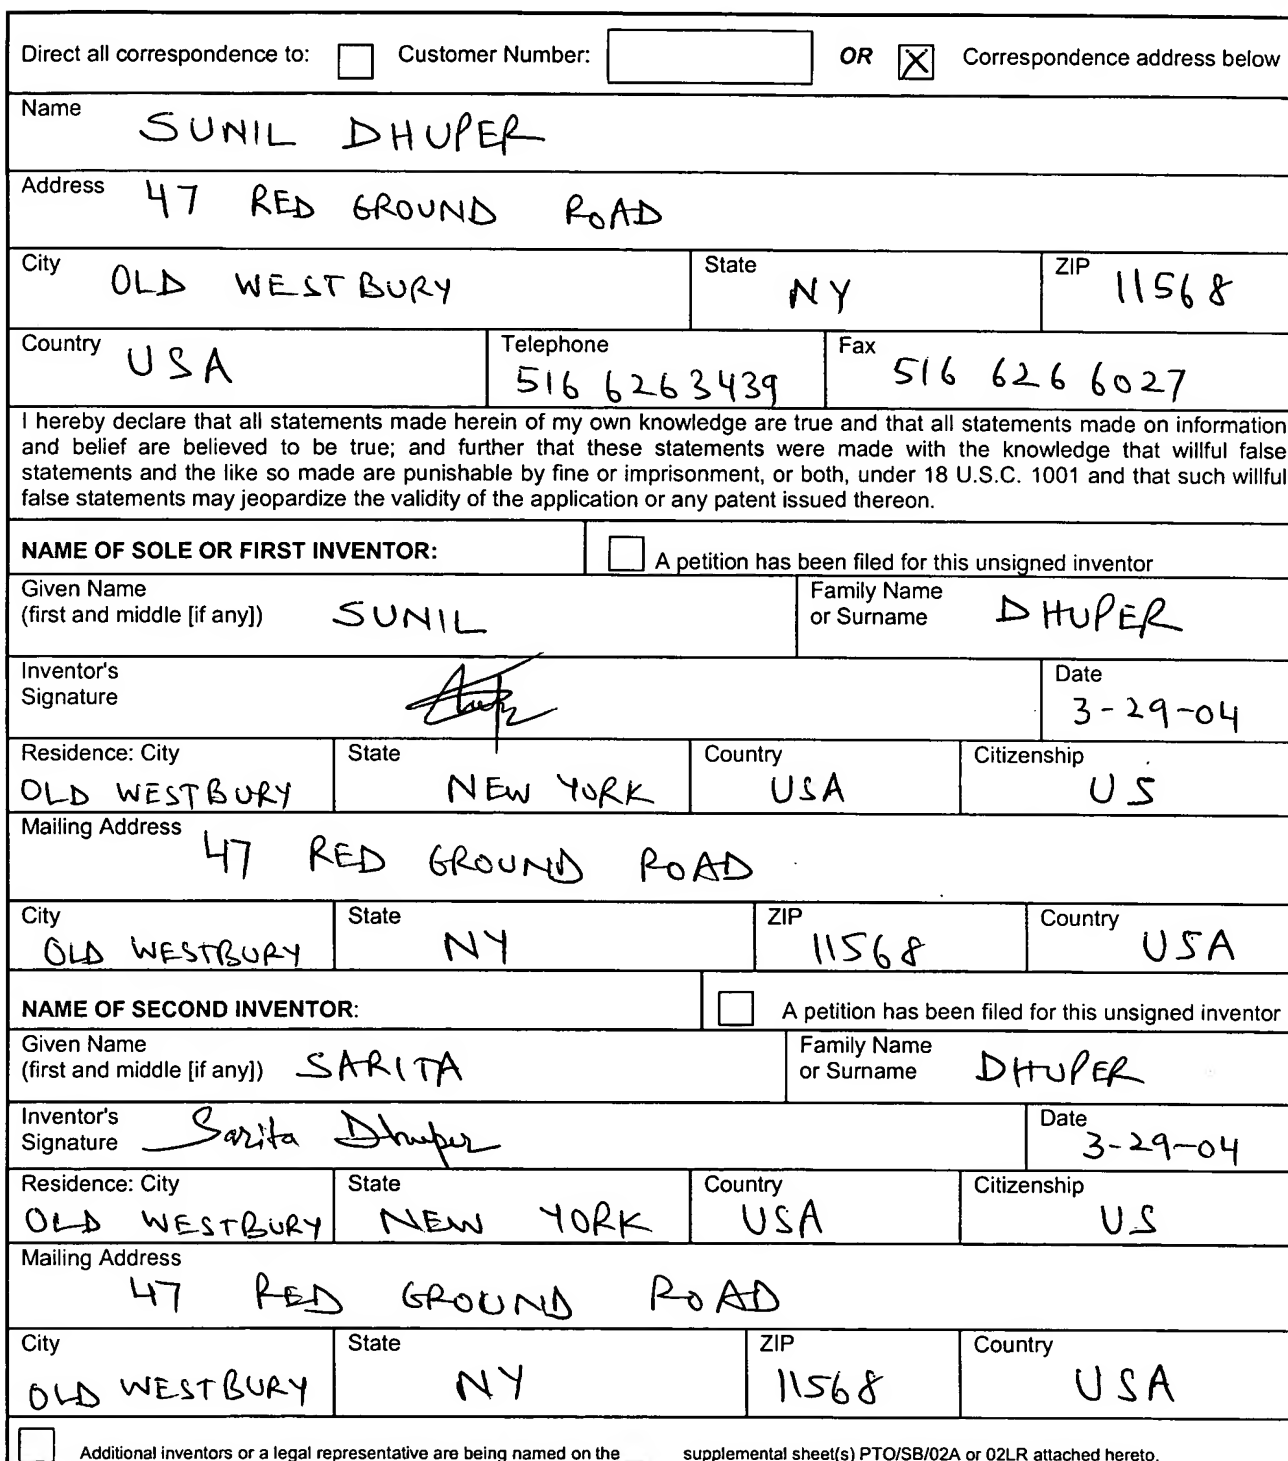 Direct all correspondence to: Customer Number: OR X Correspondence address below
Name SUNIL DHUPER
Address 47 RED GROUND ROAD
City OLD WESTBURY State NY ZIP 11568
Country USA Telephone 516 626 3439 Fax 516 626 6027
I hereby declare that all statements made herein of my own knowledge are true and that all statements made on information
and belief are believed to be true; and further that these statements were made with the knowledge that willful false
statements and the like so made are punishable by fine or imprisonment, or both, under 18 U.S.C. 1001 and that such willful
false statements may jeopardize the validity of the application or any patent issued thereon.
NAME OF SOLE OR FIRST INVENTOR: A petition has been filed for this unsigned inventor
Given Name Family Name
(first and middle [if any]) SUNIL or Surname DHUPER
Inventor's Date
Signature 3-29-04
Residence: City State Country Citizenship
OLD WESTBURY NEW YORK USA US
Mailing Address
47 RED GROUND ROAD
City State ZIP Country
OLD WESTBURY NY 11568 USA
NAME OF SECOND INVENTOR: A petition has been filed for this unsigned inventor
Given Name Family Name
(first and middle [if any]) SARITA or Surname DHUPER
Inventor's Date
Signature Sarita Dhuper 3-29-04
Residence: City State Country Citizenship
OLD WESTBURY NEW YORK USA US
Mailing Address
47 RED GROUND ROAD
City State ZIP Country
OLD WESTBURY NY 11568 USA
Additional inventors or a legal representative are being named on the supplemental sheet(s) PTO/SB/02A or 02LR attached hereto.